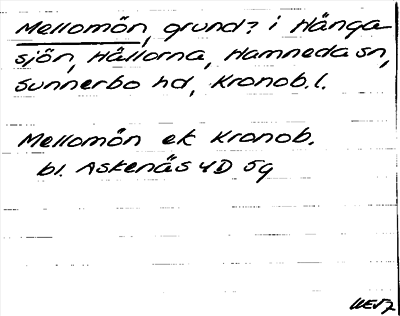 Mellomön, grund? i Hånga-
sjön, Hållorna, Hamneda sn,
Sunnerbo hd, Kronob. l.
Mellomön ek Kronob.
bl. Askenäs 4D 5g